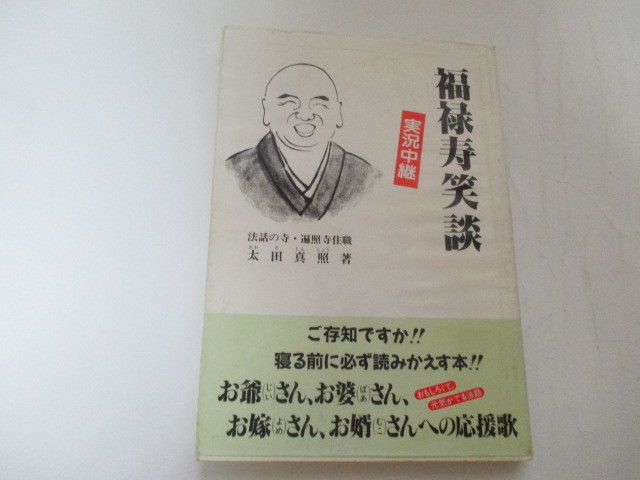 福禄寿笑談
実況中継
法話の寺・遍照寺住職
太田真照著
ご存知ですか!!
寝る前に必ず読みかえす本!!
お爺さん、お婆さん、
おもしろくて、
元気がでる法話
お嫁さん、お婿さんへの応援歌